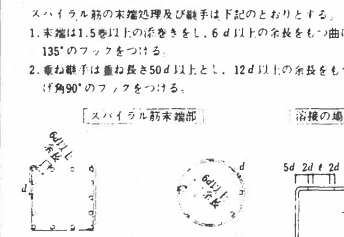 スパイラル筋の末端処理及び継手は下記のとおりとする。
1. 末端は1.5巻以上の添巻きをし、6d以上の余長をもつ曲
135°のフックをつける。
2. 重ね継手は重ね長さ50d以上とし、12d以上の余長をも
げ角90°のフックをつける。
スパイラル筋末端部
溶接の場
6d以上
余長
d
6d以上
余長
d
5d 2d ℓ 2d